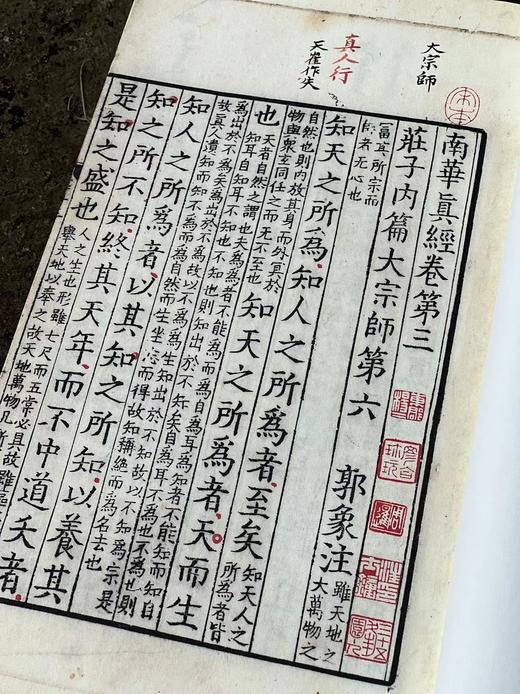 大宗師
真人行
天崔作失
南華真經卷第三
莊子内篇大宗師第六 郭象注 雖天地之
大萬物之
富其所宗而
師者无心也
知天之所為知人之所為者至矣 知天人之
所為者皆
自然也則内放其身而外冥於
物與衆玄同任之而无不至也 知天之所為者天而生
也 天者自然之謂也夫為為者不能為而為自為耳為知者不能知而知自
知耳自知耳不知也不知也則知出於不知矣自為耳不為也不為也則
為出於不為矣為出於不為故以不為為主知出於不知故以不知為宗是
故真人遺知而知不為而為自然而生坐忘而得故知稱絶而為名去也
知人之所為者以其知之所知以養其
知之所不知終其天年而不中道夭者
是知之盛也 人之生也形雖七尺而五常必具故雖區
舉天地以奉之故天地萬物凡所